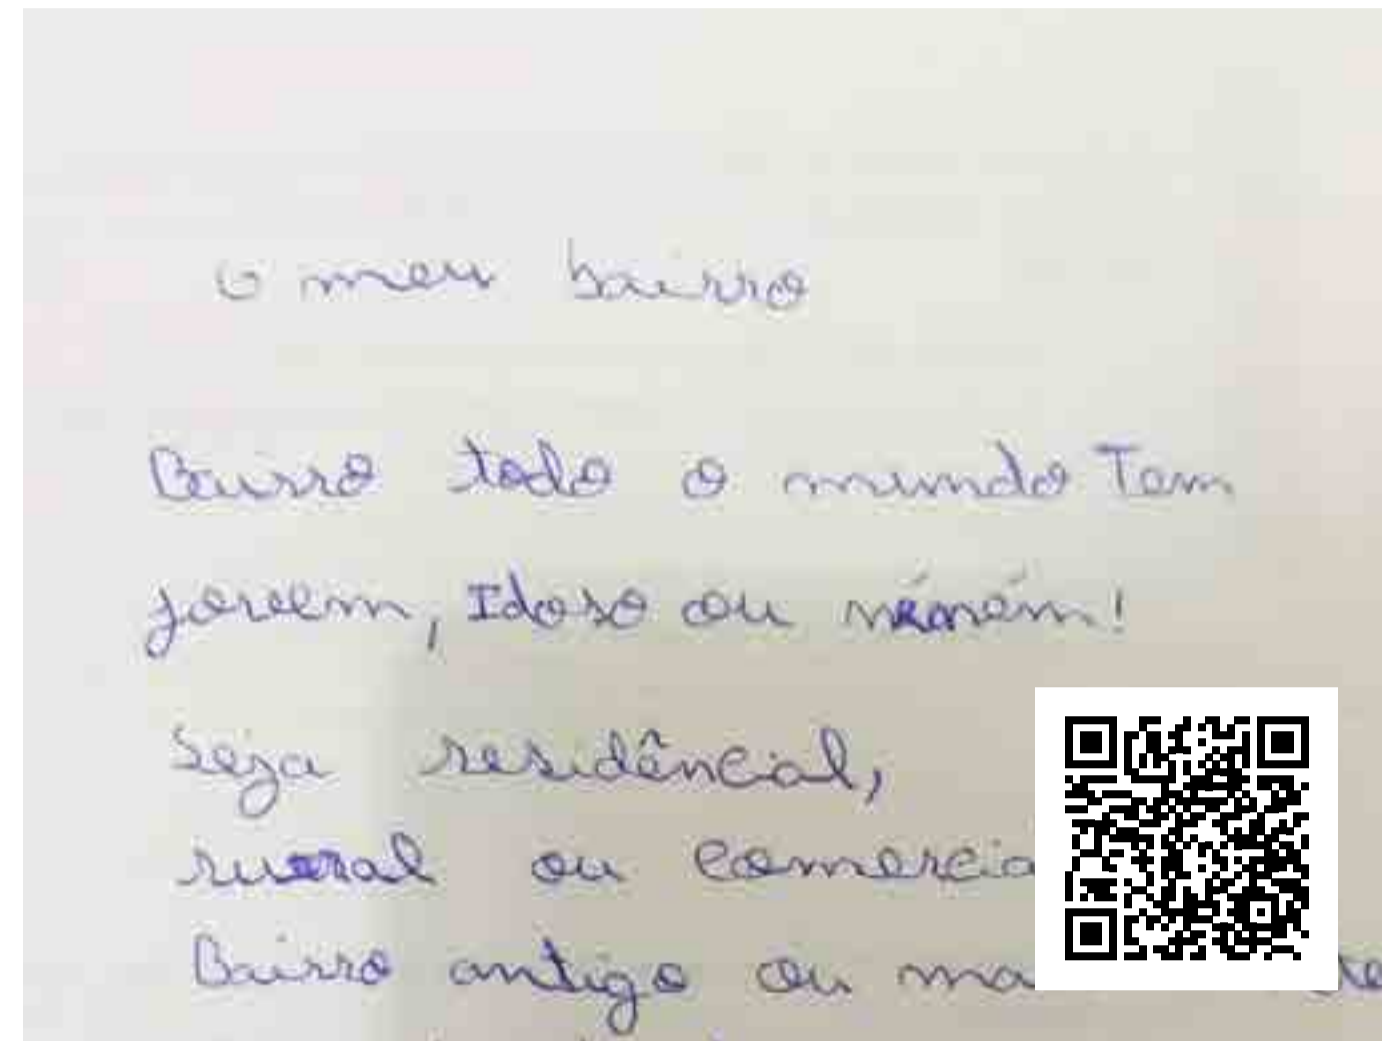 O meu bairro
Bairro todo o mundo Tem
jovem, Idoso ou néném!
Seja residêncial,
rural ou
Bairro antigo ou